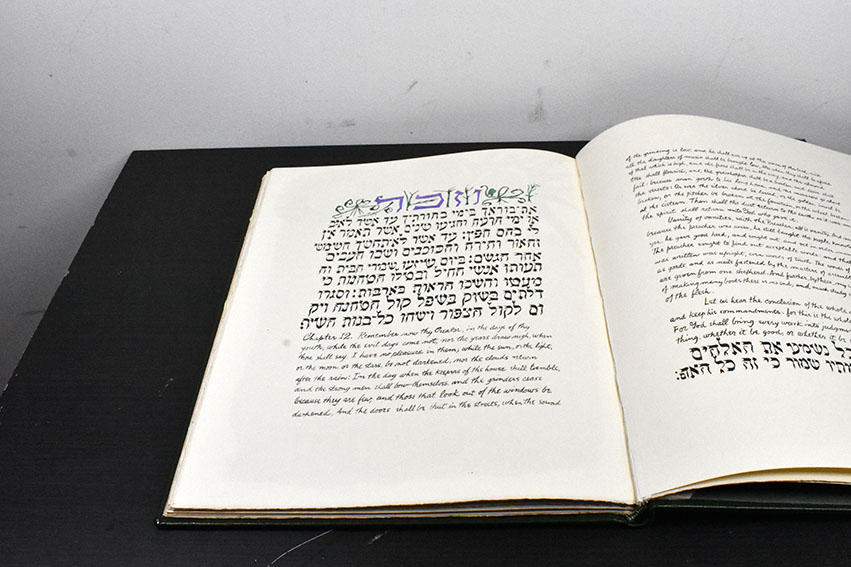 וזכר
את בוראך בימי בחורתיך עד אשר לא יב
או ימי הרעה והגיעו שנים אשר תאמר אין
לי בהם חפץ: עד אשר לא תחשך השמש
והאור והירח והכוכבים ושבו העבים
אחר הגשם: ביום שיזעו שמרי הבית וה
תעותו אנשי החיל ובטלו הטחנות כי
מעטו וחשכו הראות בארבות: וסגרו
דלתים בשוק בשפל קול הטחנה ויק
ום לקול הצפור וישחו כל-בנות השיר:
Chapter 12. Remember now thy Creator, in the days of thy
youth, while the evil days come not, nor the years draw nigh, when
thou shall say, I have no pleasure in them; while the sun, or the light,
or the moon, or the stars, be not darkened, nor the clouds return
after the rain: In the day when the keepers of the house shall tremble,
and the strong men shall bow themselves, and the grinders cease
because they are few, and those that look out of the windows be
darkened. And the doors shall be shut in the streets, when the sound
of the grinding is low, and he shall rise up at the voice of the bird, and
all the daughters of music shall be brought low; Also when they shall be
of that which is high, and fears shall be in the way, and the almond
tree shall flourish, and the grasshopper shall be a burden, and desire shall
fail: because man goeth to his long home, and the mourners go about
the streets: Or ever the silver chord be loosed, or the golden bowl be
broken, or the pitcher be broken at the fountain, or the wheel broken
at the cistern. Then shall the dust return to the earth as it was
the spirit shall return unto God who gave it.
Vanity of vanities, saith the Preacher; all is vanity. And
because the preacher was wise, he still taught the people knowledge;
yea, he gave good heed, and sought out, and set in order
The preacher sought to find out acceptable words: and that which
was written was upright, even words of truth. The words of the
as goads, and as nails fastened by the masters of
are given from one shepherd. And further, by these, my son
of making many books there is no end; and much study is
of the flesh.
Let us hear the conclusion of the whole
and keep his commandments: for this is the whole
For God shall bring every work into judgment
thing, whether it be good, or whether it be
כל נשמע את האלהים
שמור כי זה כל האדם: